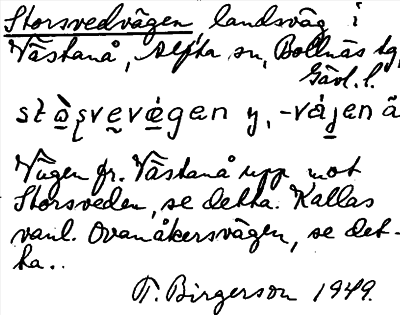 Storsvedvägen, landsväg i
Västanå, Alfta sn, Bollnäs tg,
Gävl. l.
vägen y, -vájen ä
Vägen fr. Västanå upp mot
Storsveden, se detta. Kallas
vanl. Ovanåkersvägen, se det-
ta..
T. Birgerson 1949.